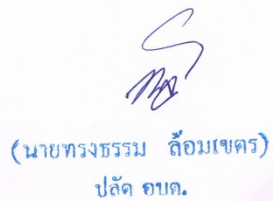 (นายทรงธรรม ล้อมเขตร)
ปลัด อบต.